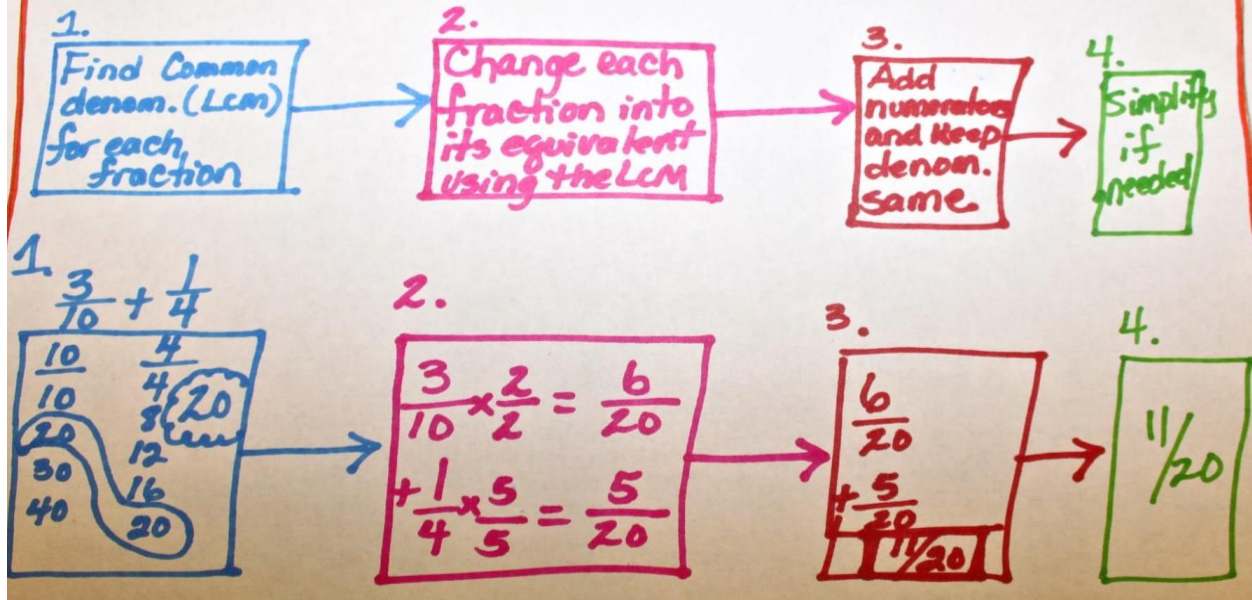 1.
Find Common
denom. (Lcm)
for each
fraction
2.
Change each
fraction into
its equivalent
using the LCM
3.
Add
numerators
and keep
denom.
same
4.
Simplify
if
needed
1.
3/10 + 1/4
10 4
10 4
20 8
30 12
40 16
20
20
2.
3/10 × 2/2 = 6/20
+ 1/4 × 5/5 = 5/20
3.
6/20
+ 5/20
11/20
4.
11/20